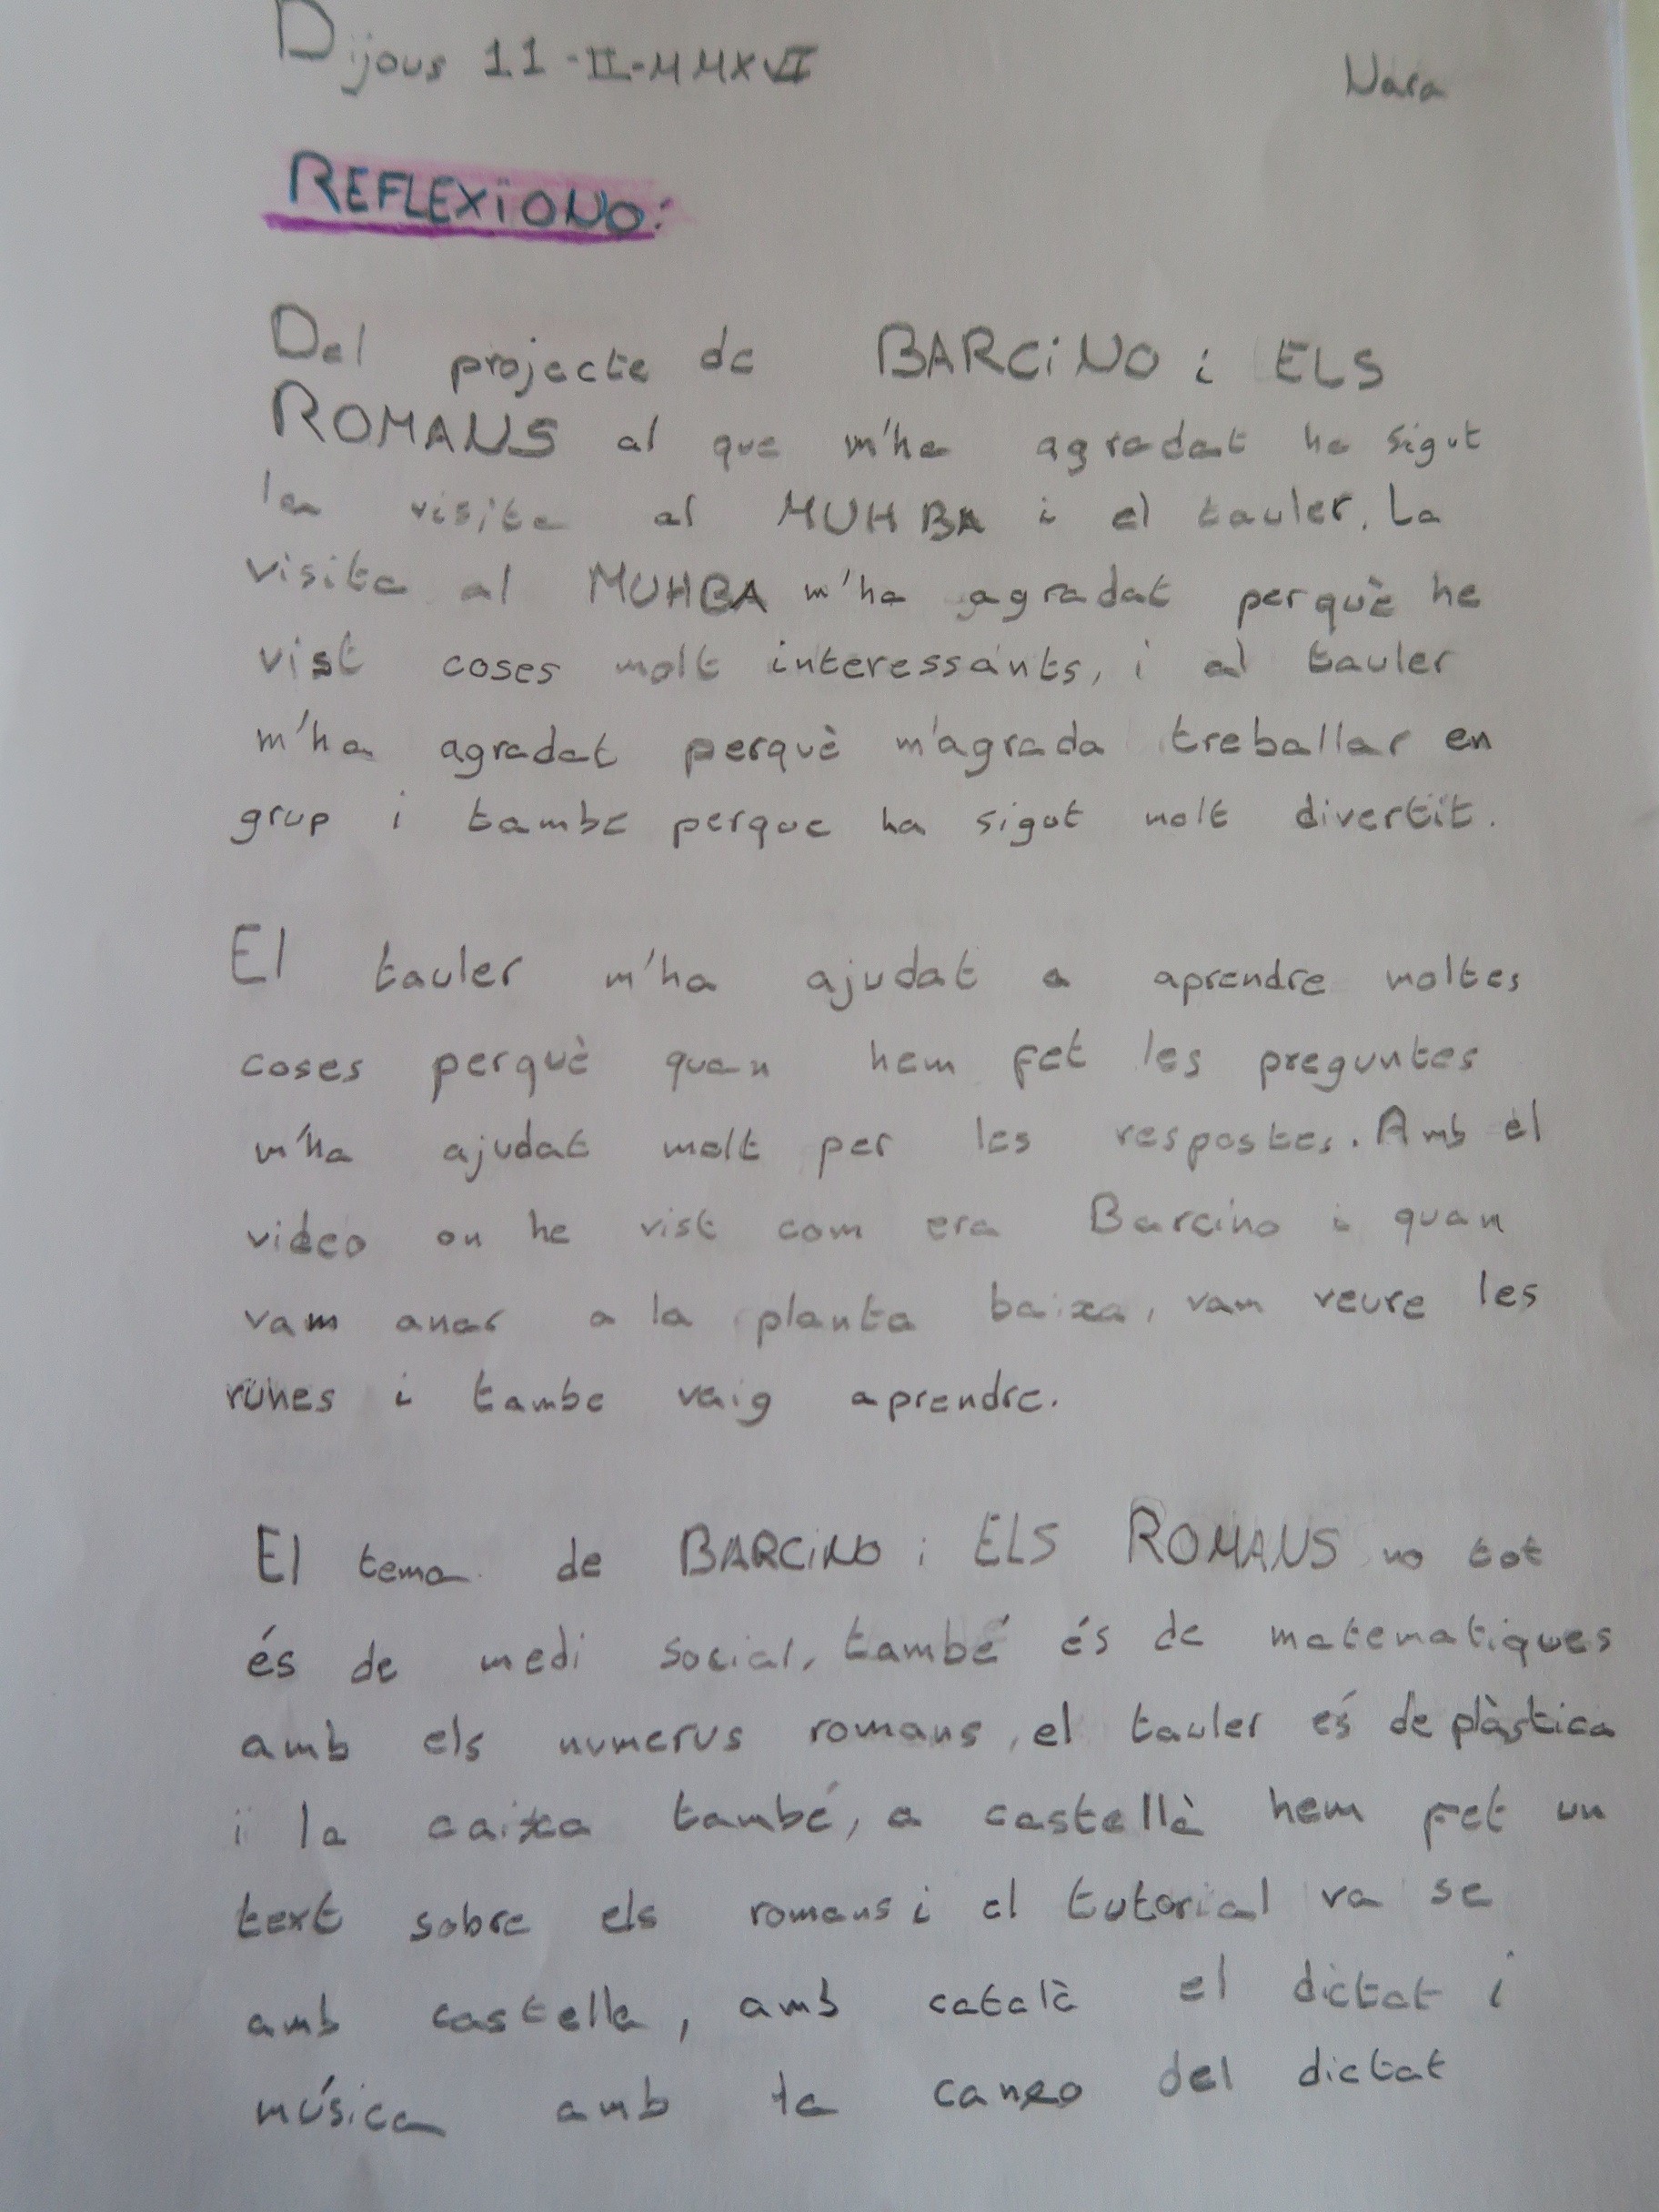 Dijous 11-II-MMXVI
Nara
REFLEXIONO:
Del projecte de BARCINO i ELS
ROMANS el que m'ha agradat ha sigut
la visita al MUHBA i el tauler. La
visita al MUHBA m'ha agradat perquè he
vist coses molt interessants, i el tauler
m'ha agradat perquè m'agrada treballar en
grup i tambe perque ha sigut molt divertit.
El tauler m'ha ajudat a aprendre moltes
coses perquè quan hem fet les preguntes
m'ha ajudat molt per les respostes. Amb el
video on he vist com era Barcino i quan
vam anar a la planta baixa, vam veure les
runes i tambe vaig aprendre.
El tema de BARCINO i ELS ROMANS no tot
és de medi social, també és de matematiques
amb els numerus romans, el tauler és de plàstica
i la caixa també, a castellà hem fet un
text sobre els romans i el tutorial va se
amb castella, amb català el dictat i
música amb la canço del dictat